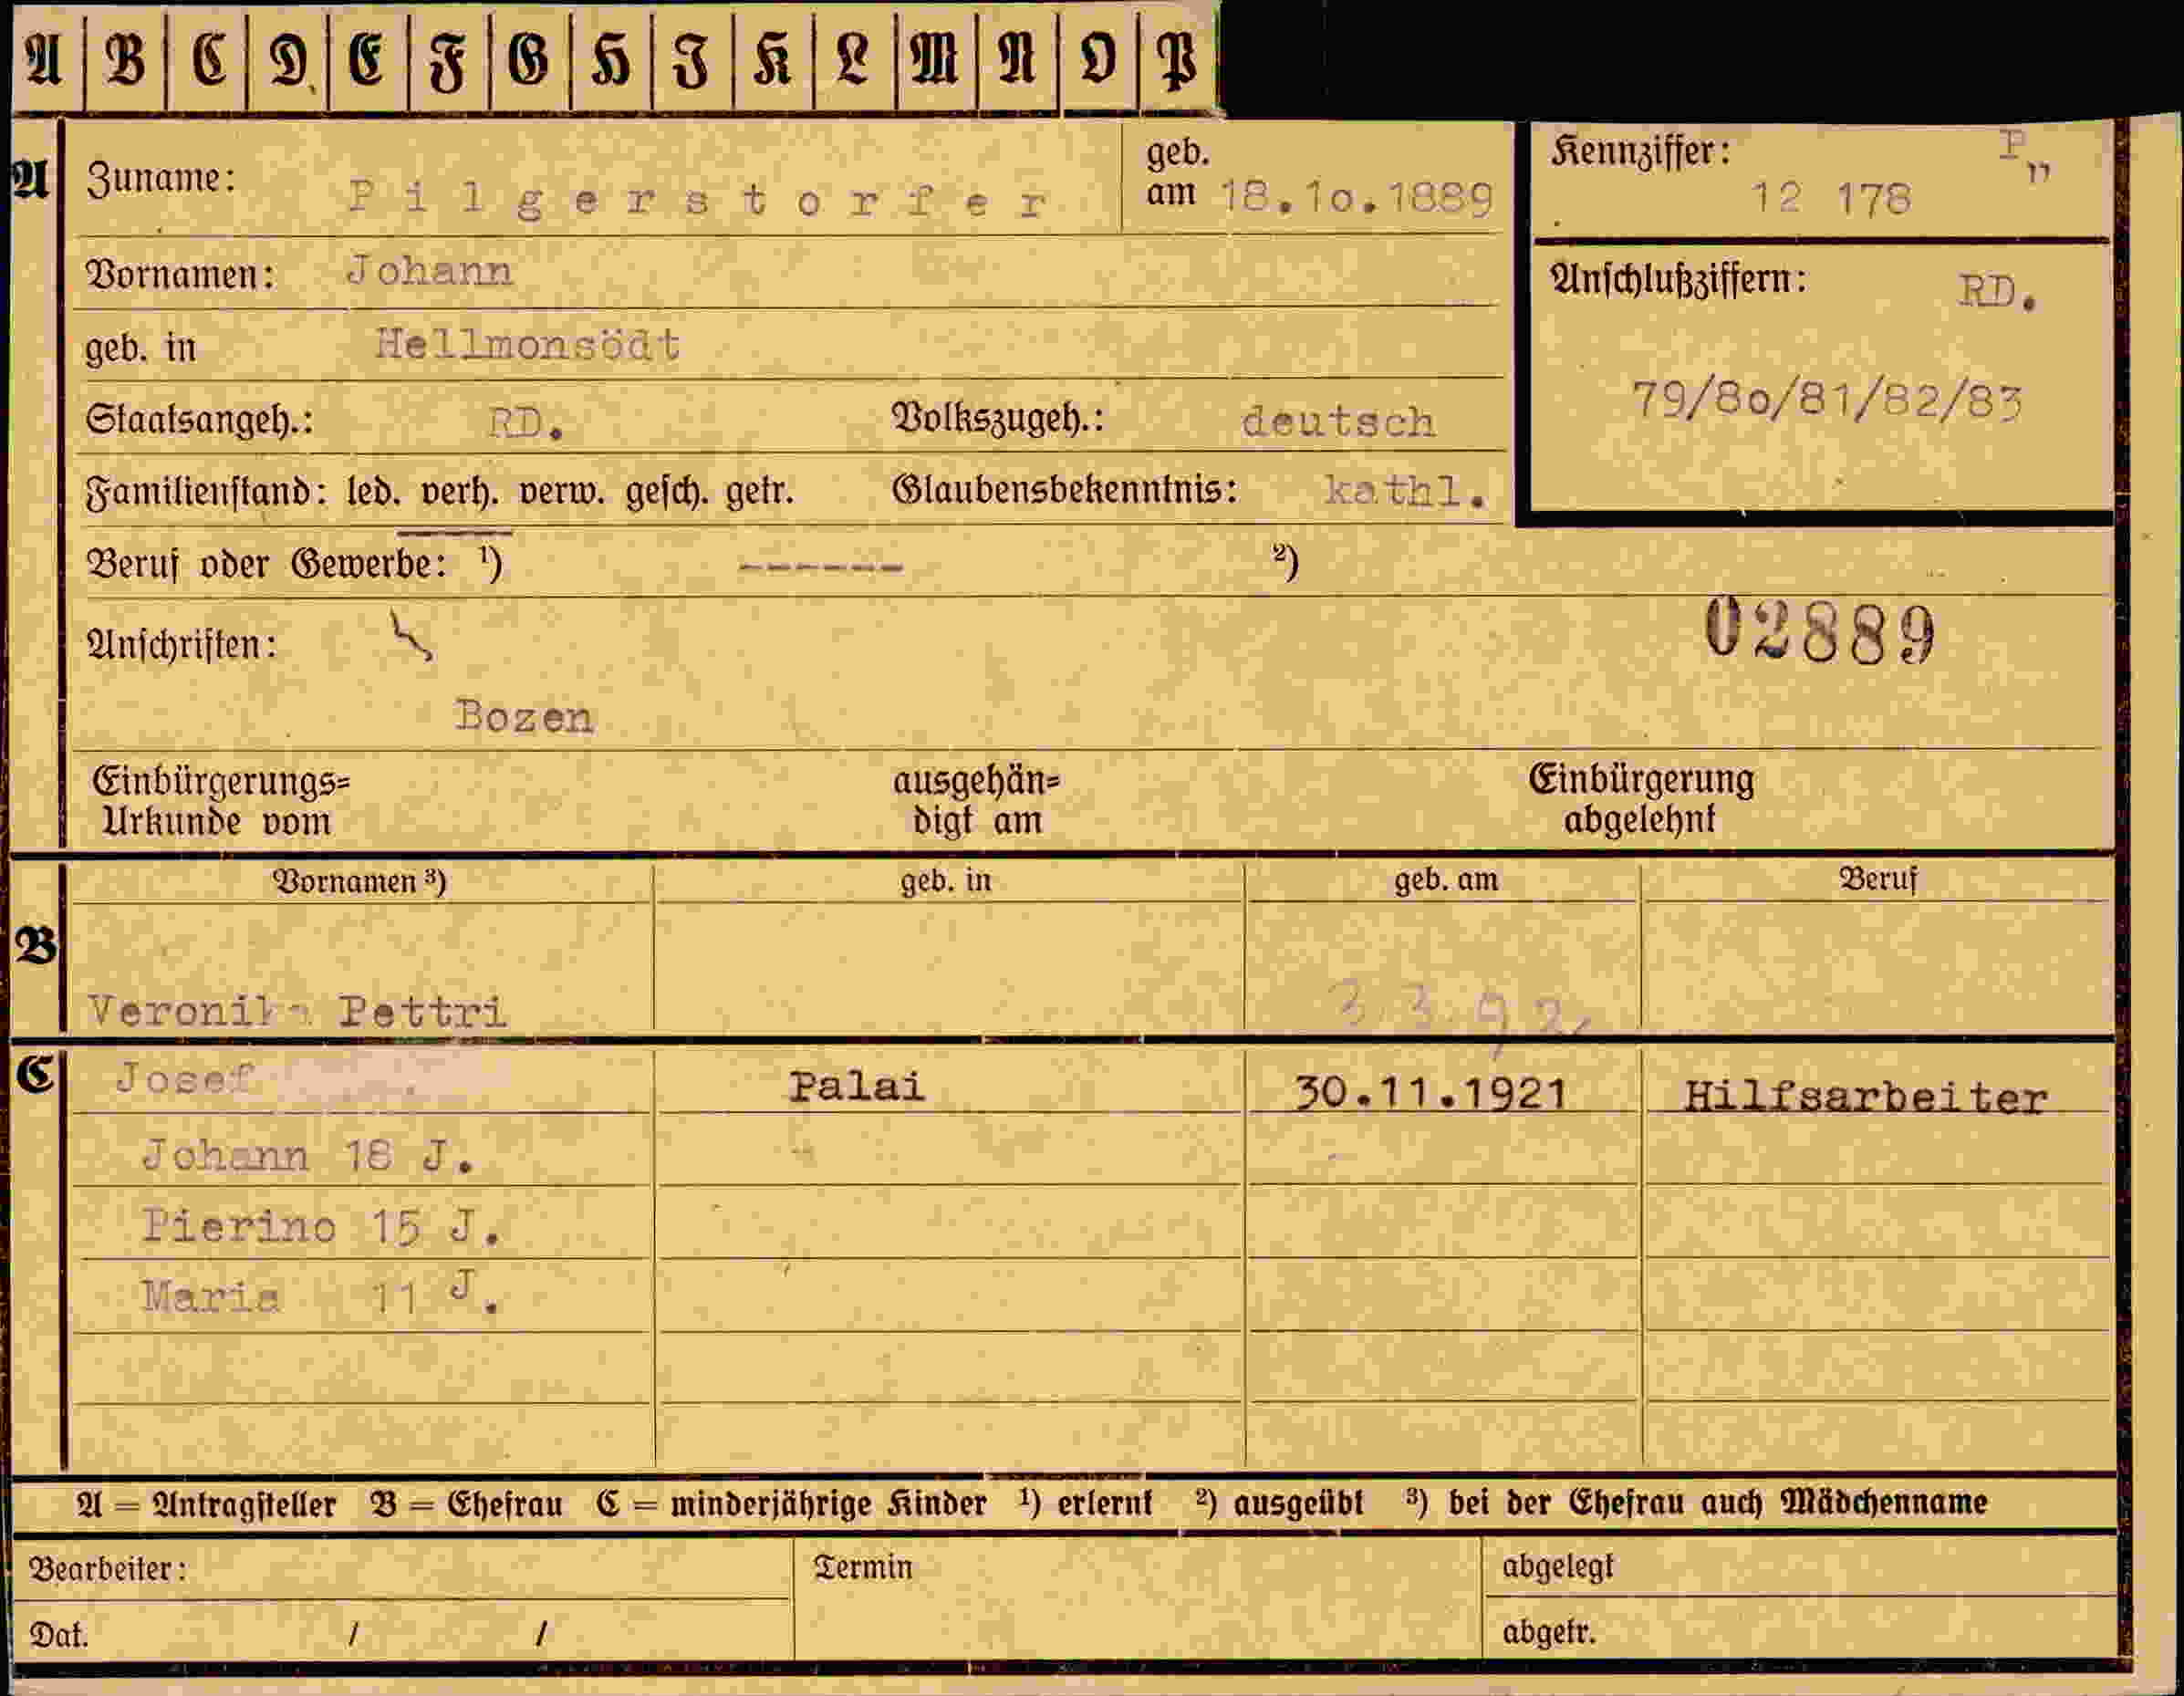 A B C D E F G H I K L M N O P
A Zuname: Pilgerstorfer geb. am 18.10.1889 Kennziffer: P„ 12 178
Vornamen: Johann Anschlußziffern: RD.
geb. in Hellmonsödt
Staatsangeh.: RD. Volkszugeh.: deutsch 79/80/81/82/83
Familienstand: led. verh. verw. gesch. getr. Glaubensbekenntnis: kathl.
Beruf oder Gewerbe: ¹) ------ ²)
Anschriften: 02889
Bozen
Einbürgerungs= ausgehän= Einbürgerung
Urkunde vom digt am abgelehnt
Vornamen ³) geb. in geb. am Beruf
B
Veronika Pettri 3.3.92.
C Josef Palai 30.11.1921 Hilfsarbeiter
Johann 18 J.
Pierino 15 J.
Maria 11 J.
A = Antragsteller B = Ehefrau C = minderjährige Kinder ¹) erlernt ²) ausgeübt ³) bei der Ehefrau auch Mädchenname
Bearbeiter: Termin abgelegt
Dat. / / abgetr.